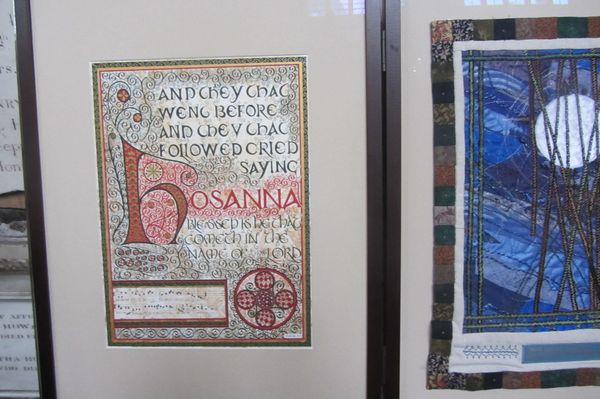 AND THEY THAT
WENT BEFORE
AND THEY THAT
FOLLOWED CRIED
SAYING
hOSANNA
BLESSED IS HE THAT
COMETH IN THE
NAME OF THE LORD